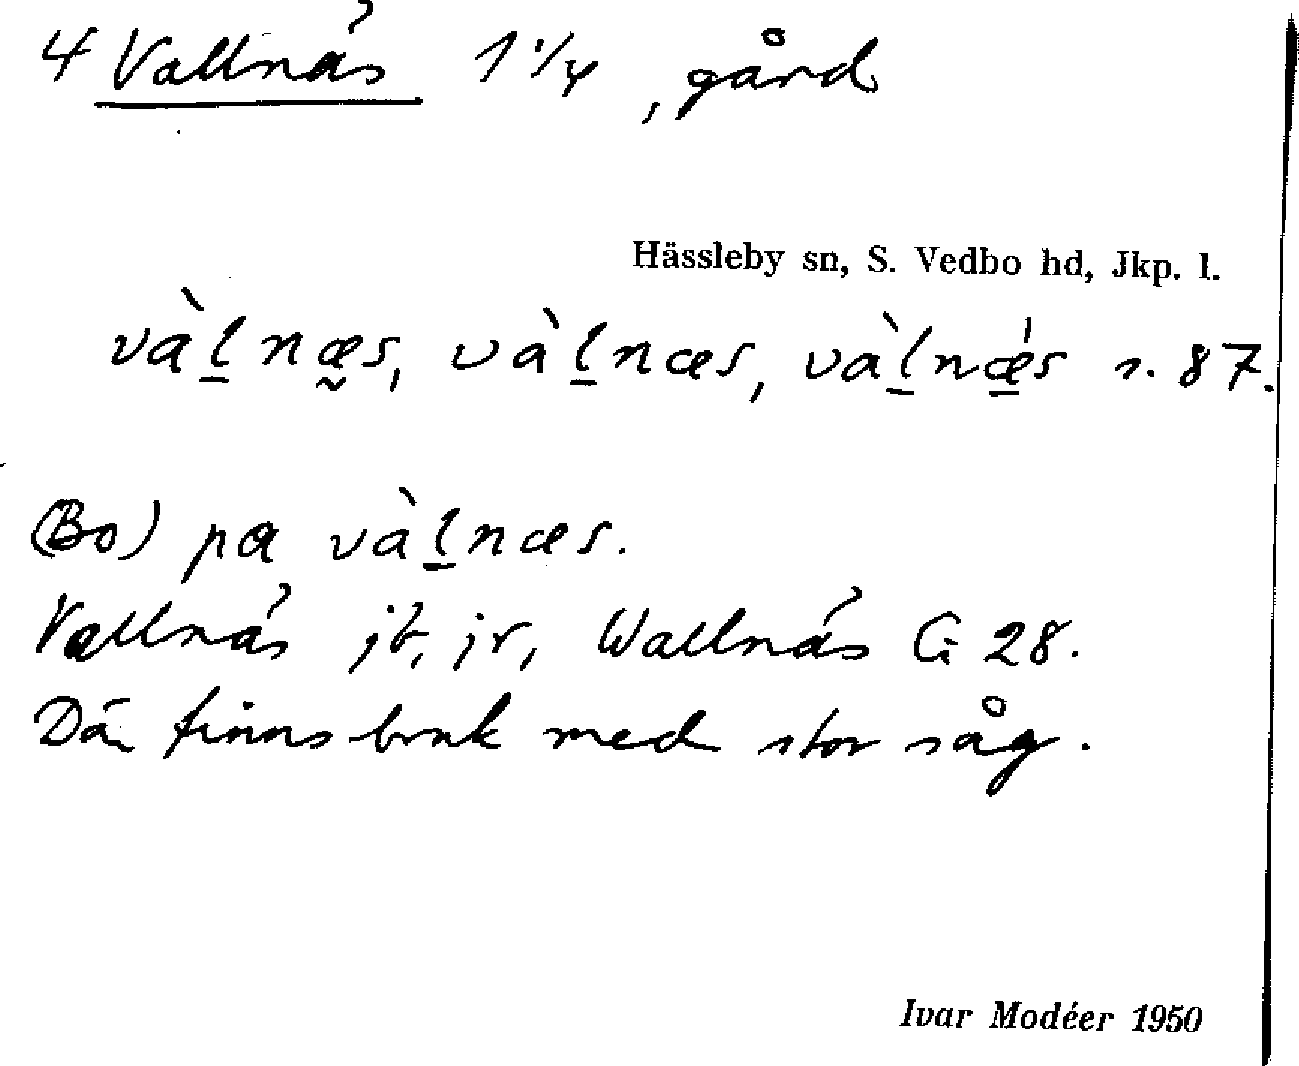 4 Vallnäs 1 1/4, gård
Hässleby sn, S. Vedbo hd, Jkp. l.
và̀l̲næ̰s, và̀l̲næs, và̀l̲nǽ̲s s. 87.
(Bo) pa và̀l̲næs.
Vallnäs jb, jr, Wallnäs G 28.
Där finns bruk med stor såg.
Ivar Modéer 1950